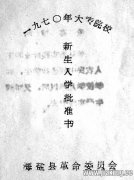 一九七〇年大专院校
新生入学批准书
县革命委员会